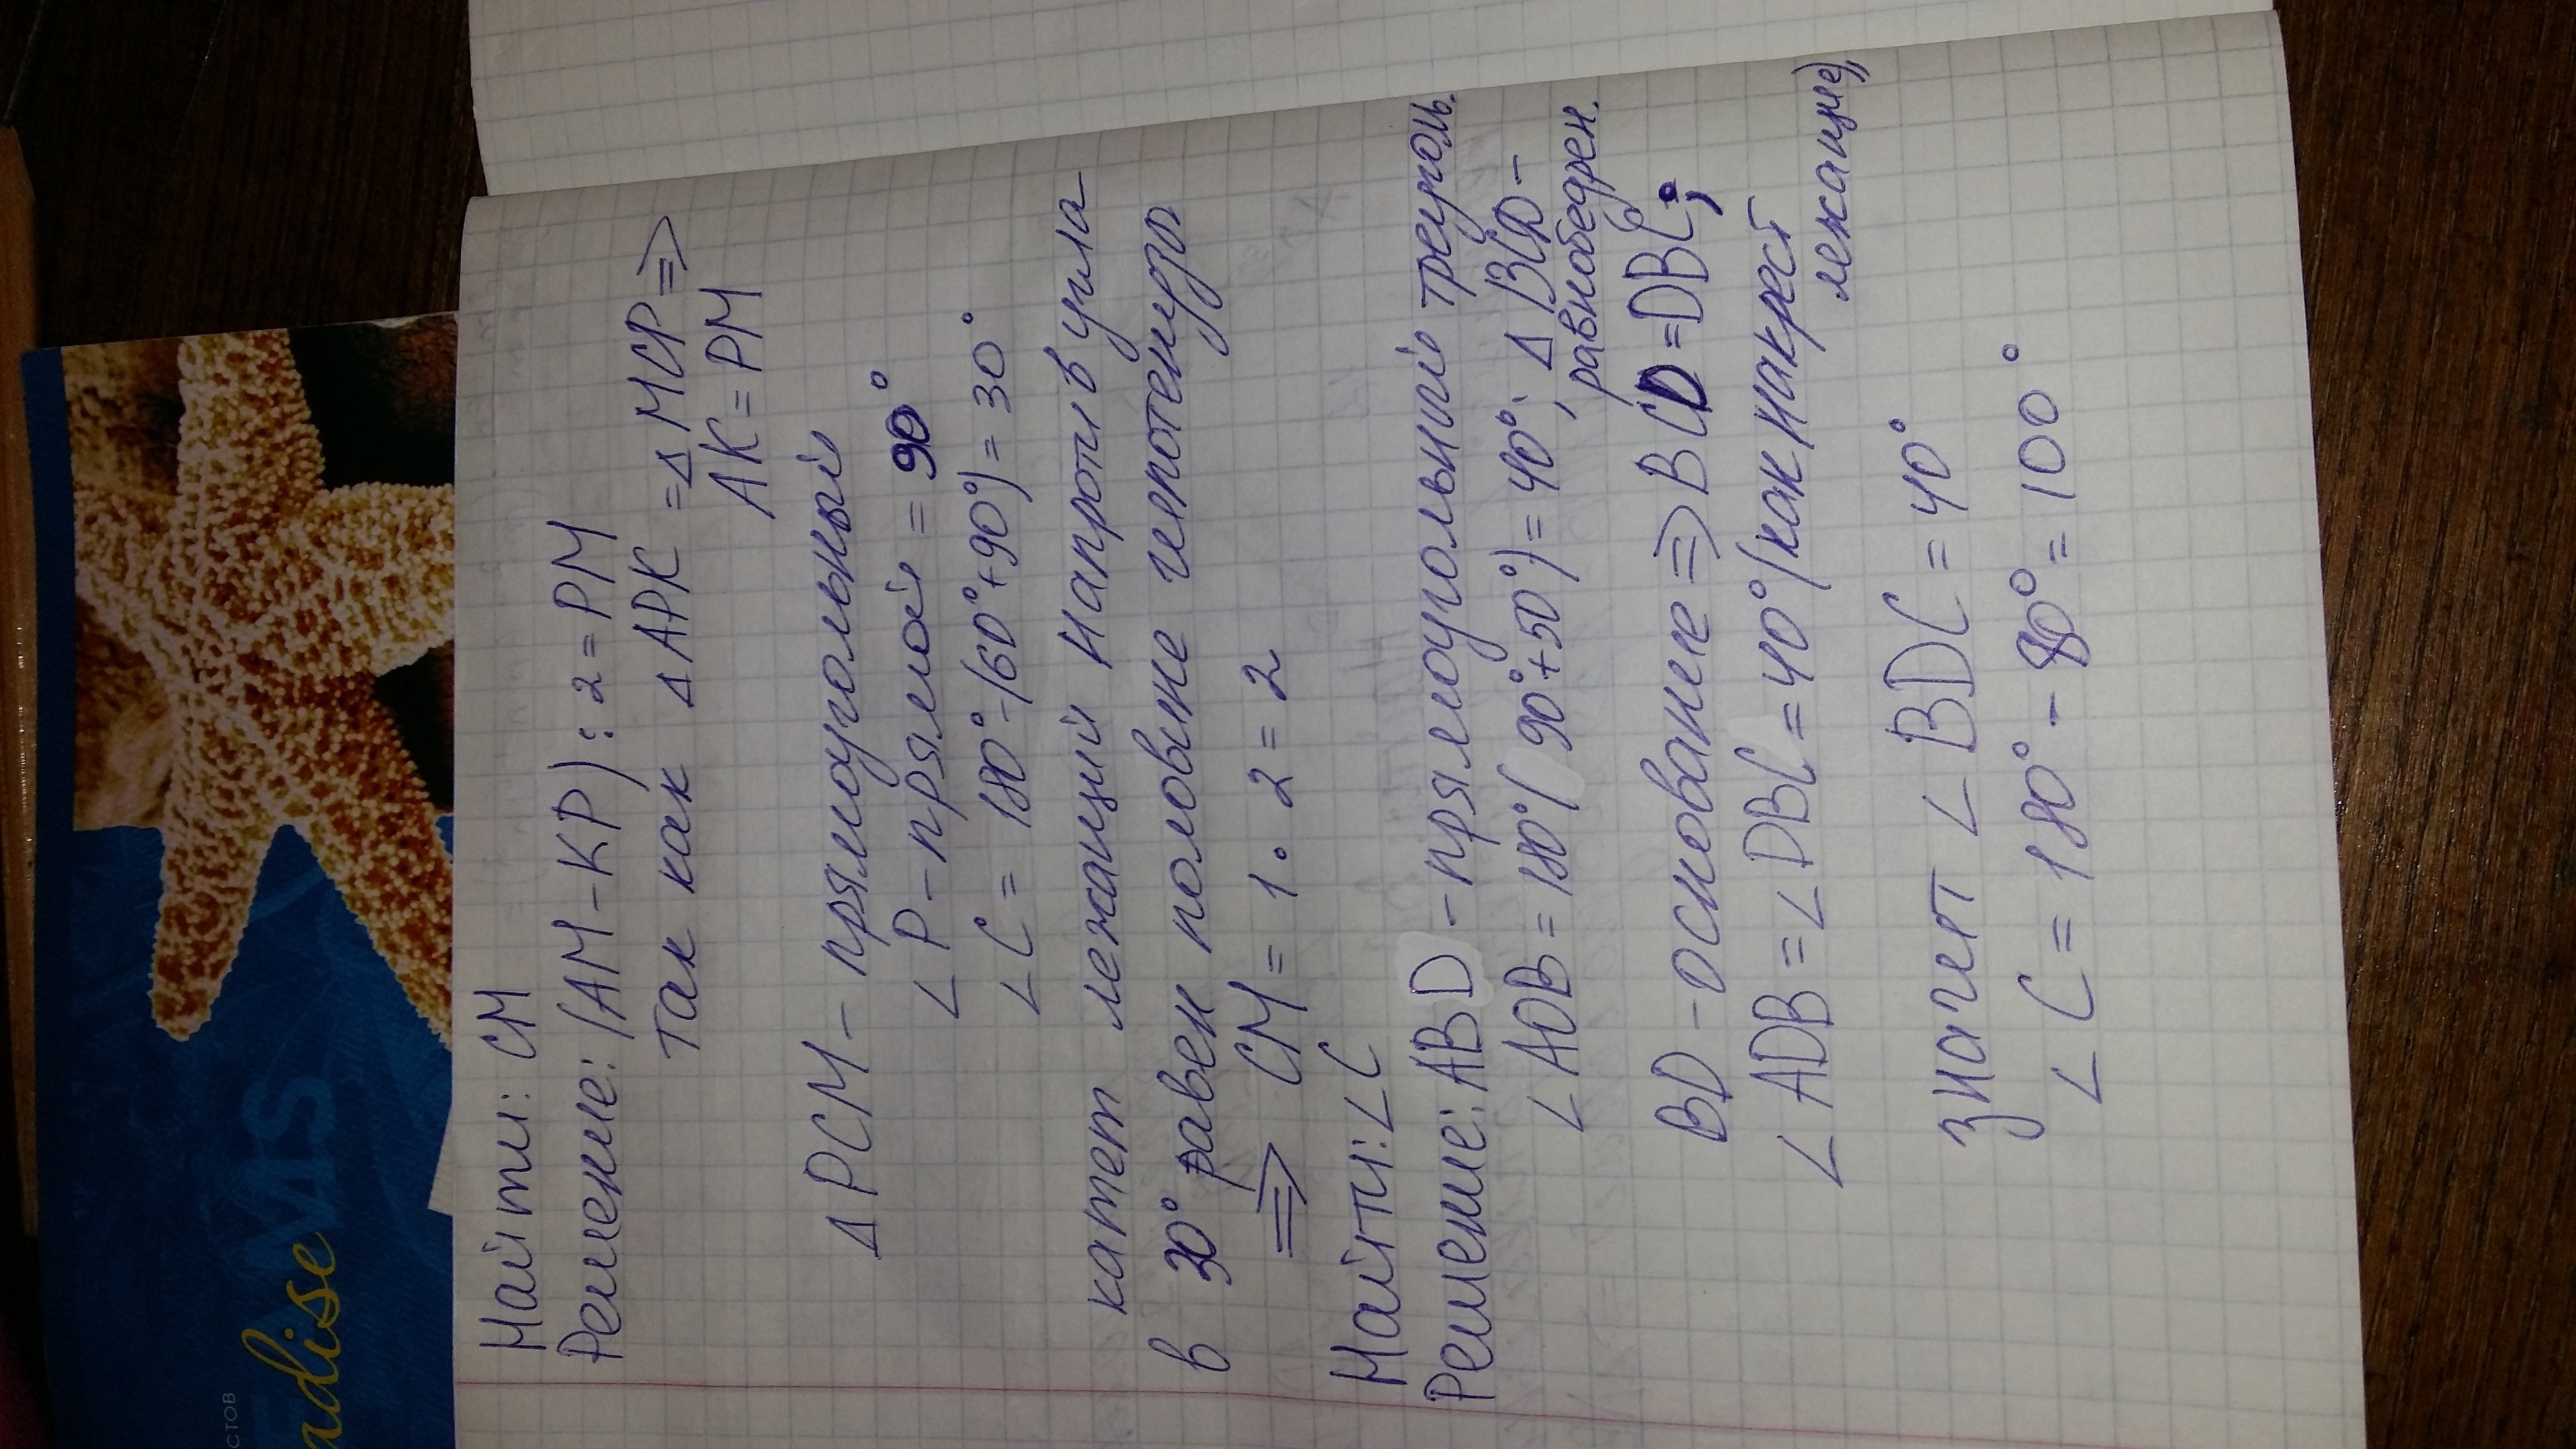 стов
MS
adise
Найти: СМ
Решение: (АМ-КР):2=РМ
так как ΔАРК=ΔМСР⇒
АК=РМ
ΔРСМ- прямоугольный
∠Р-прямой=90°
∠С=180°-(60°+90°)=30°
катет лежащий напротив угла
в 30° равен половине гипотенузы
⇒ СМ=1·2=2
Найти:∠С
Решение: ABD-прямоугольный треуголь.
∠ADB=180°(90°+50°)=40°; Δ BCD-
, равнобедрен.
BD-основание⇒BCD=DBC;
∠ADB=∠DBC=40°(как накрест
лежащие),
значит ∠BDC=40°
∠C=180°-80°=100°